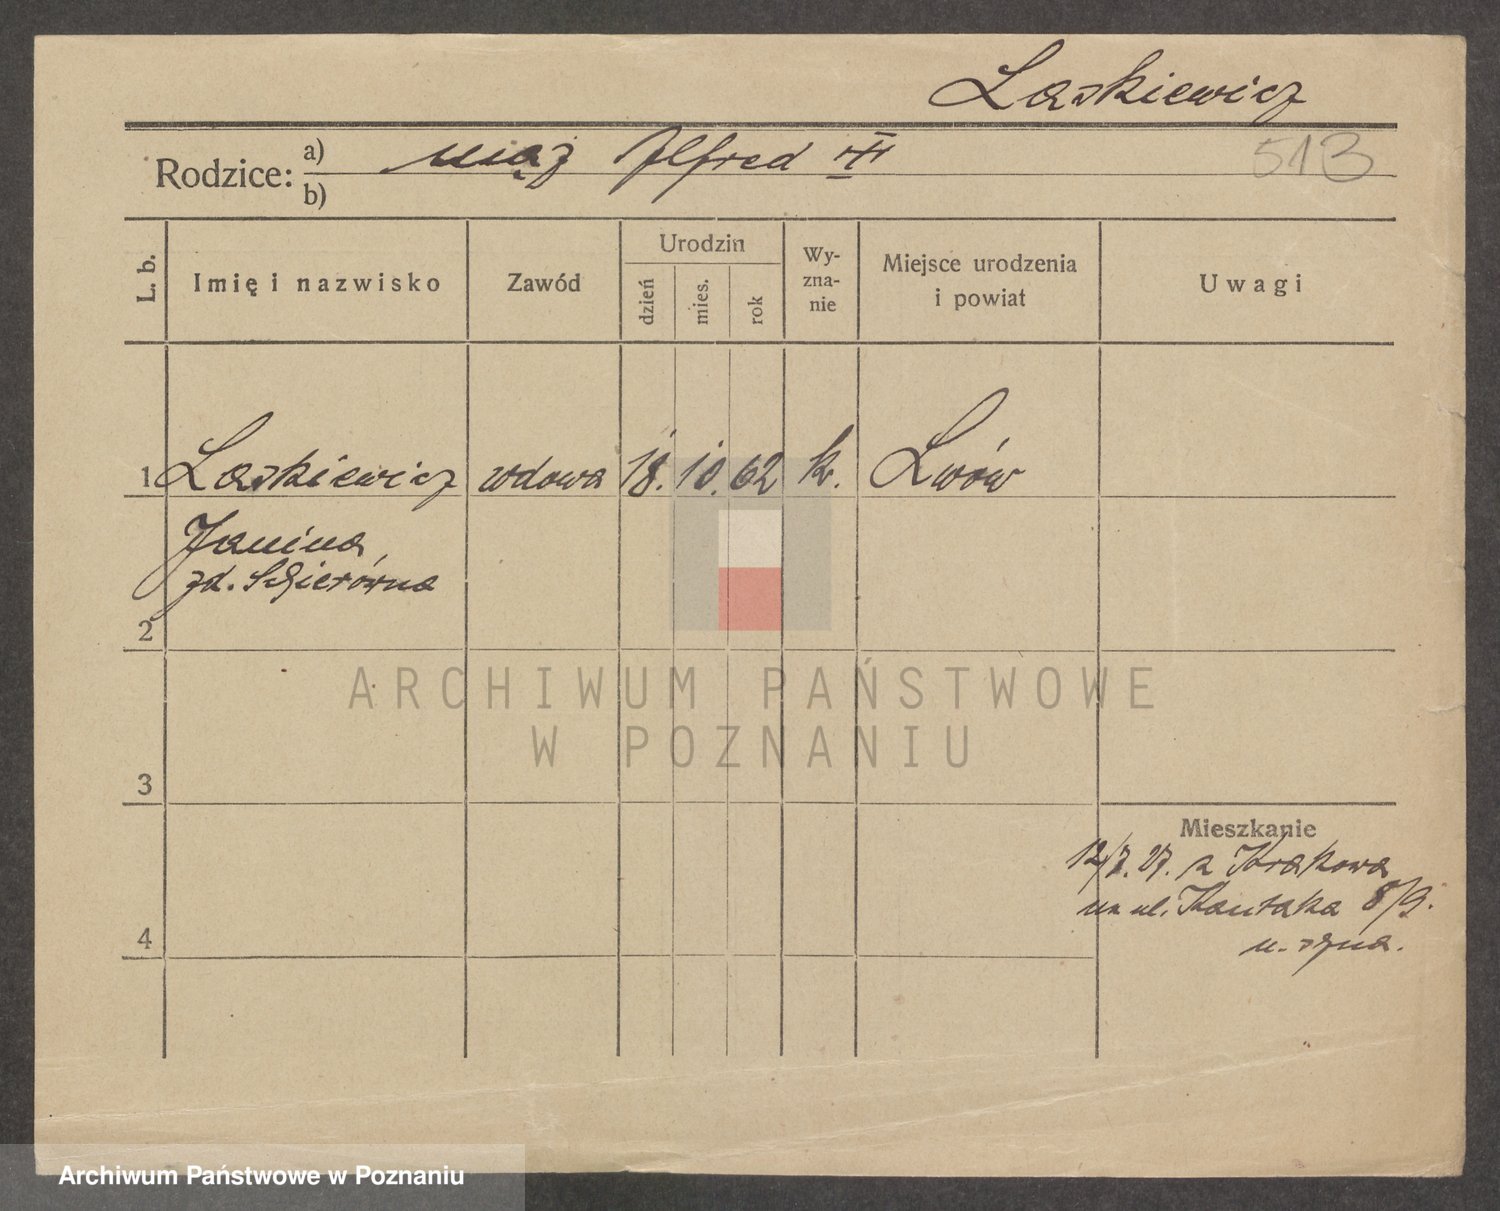 Laskiewicz
Rodzice: a) mąż Alfred
b)
513
L. b.
Imię i nazwisko
Zawód
Urodzin
dzień
mies.
rok
Wy-
zna-
nie
Miejsce urodzenia
i powiat
Uwagi
1 Laskiewicz wdowa 18. 10. 62 k. Lwów
Janina
zd.
2
3
4
Mieszkanie
12/7. 27. z Krakowa
na ul. Kantaka 8/9.
u. syna.
ARCHIWUM PAŃSTWOWE
W POZNANIU
Archiwum Państwowe w Poznaniu